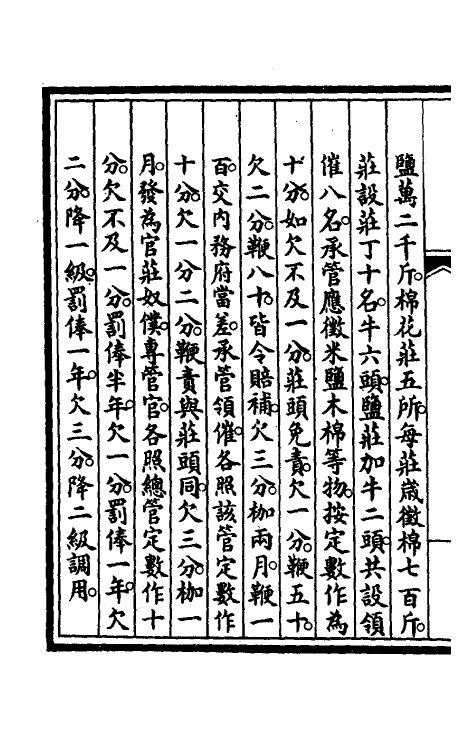 鹽萬二千斤。棉花莊五所。每莊歲徵棉七百斤。
莊設莊丁十名。牛六頭。鹽莊加牛二頭。共設領
催八名。承管應徵米鹽木棉等物。按定數作為
十分。如欠不及一分。莊頭免責。欠一分。鞭五十。
欠二分。鞭八十。皆令賠補。欠三分。枷兩月。鞭一
百。交內務府當差。承管領催。各照該管定數作
十分。欠一分二分。鞭責與莊頭同。欠三分。枷一
月。發為官莊奴僕。專管官。各照總管定數作十
分。欠不及一分。罰俸半年。欠一分。罰俸一年。欠
二分。降一級。罰俸一年。欠三分。降二級調用。